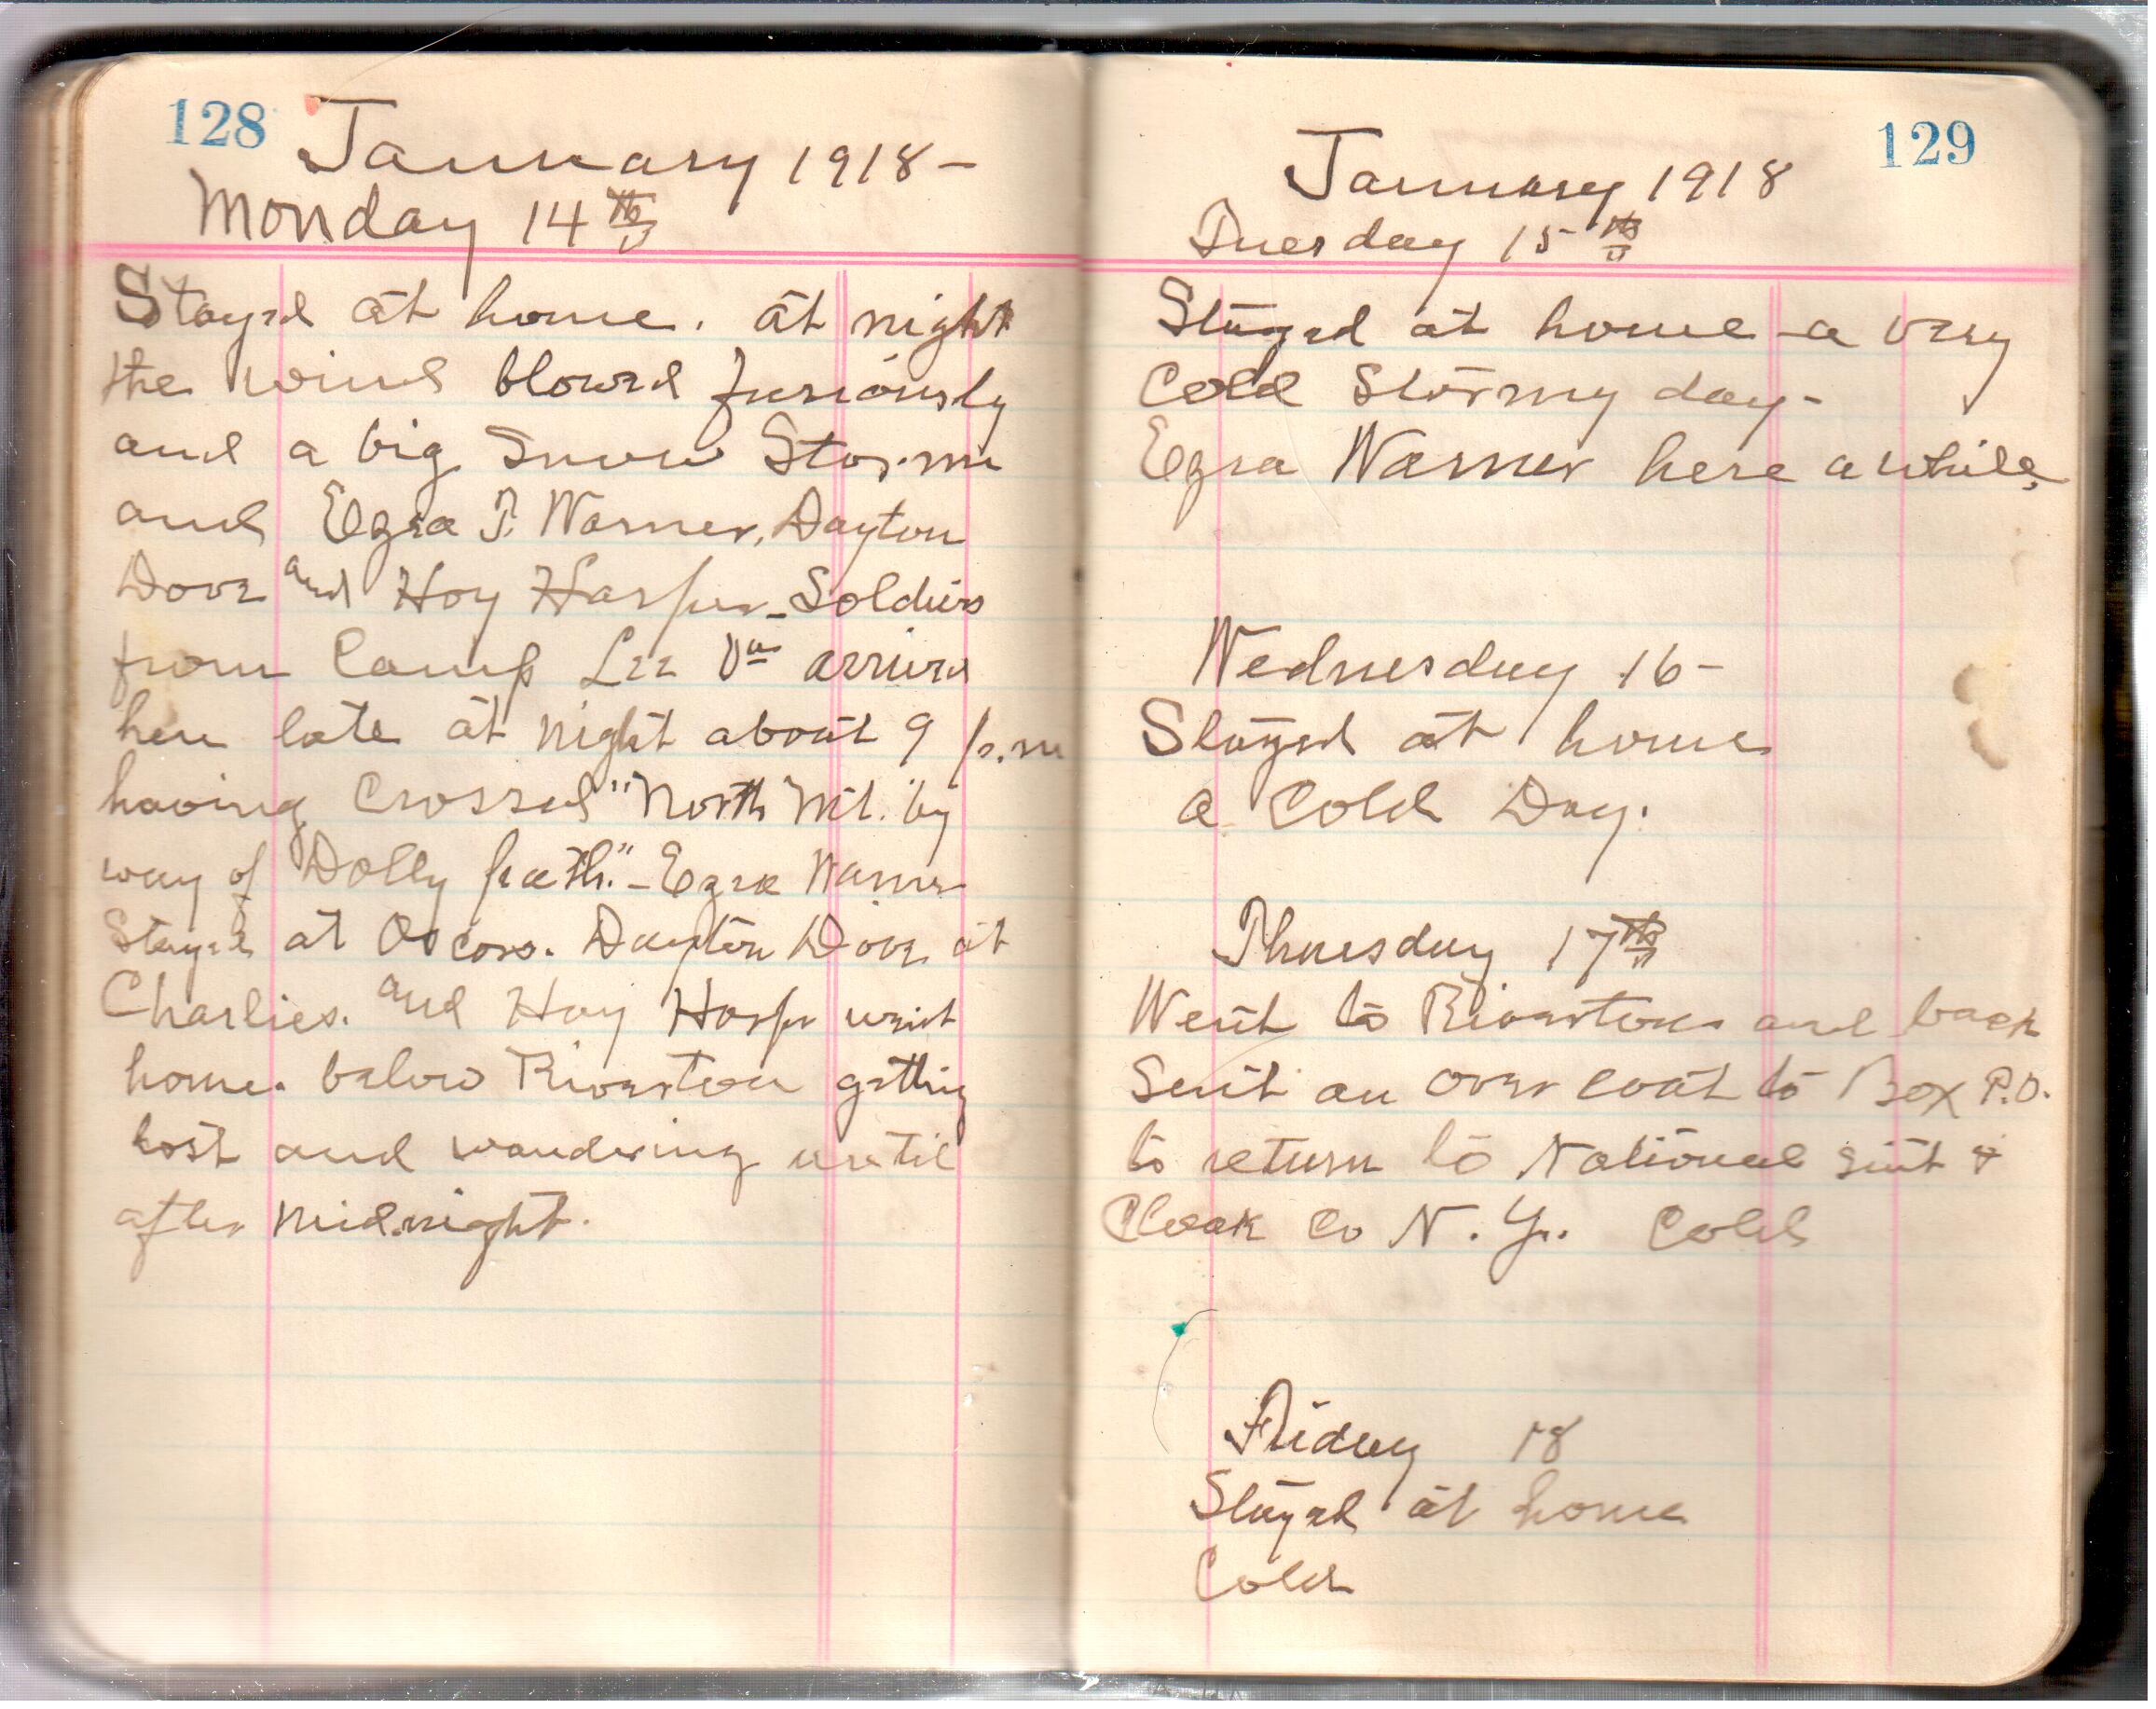 128
January 1918-
Monday 14th
Stayed at home. at night
the wind blowed furiously
and a big Snow Storm
and Ezra T. Warner, Dayton
Dove and Hoy Harper - Soldiers
from Camp Lee Va arrived
here late at night about 9 p.m
having Crossed "North Mt." by
way of "Dolly path." - Ezra Warner
Stayed at Oscars. Dayton Dove at
Charlies. and Hoy Harper went
home. below Riverton getting
lost and wandering until
after midnight.
129
January 1918
Tuesday 15th
Stayed at home - a very
Cold Stormy day -
Ezra Warner here a while.
Wednesday 16 -
Stayed at home
a Cold Day.
Thursday 17th
Went to Riverton and back
Sent an over coat to Box P.O.
to return to National Suit &
Cloak Co N.Y. Cold
Friday 18
Stayed at home
Cold